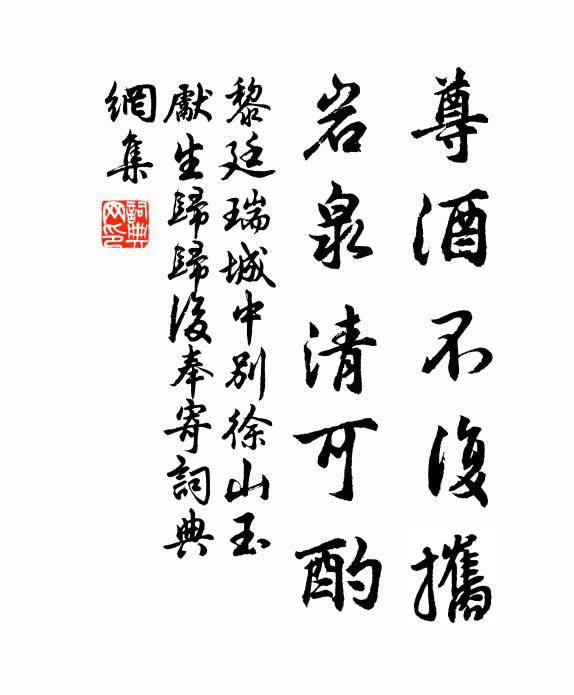 尊酒不復攜
岩泉清可酌
黎廷瑞城中別徐山玉
獻生歸歸後奉寄詞典
網集
詞典網印